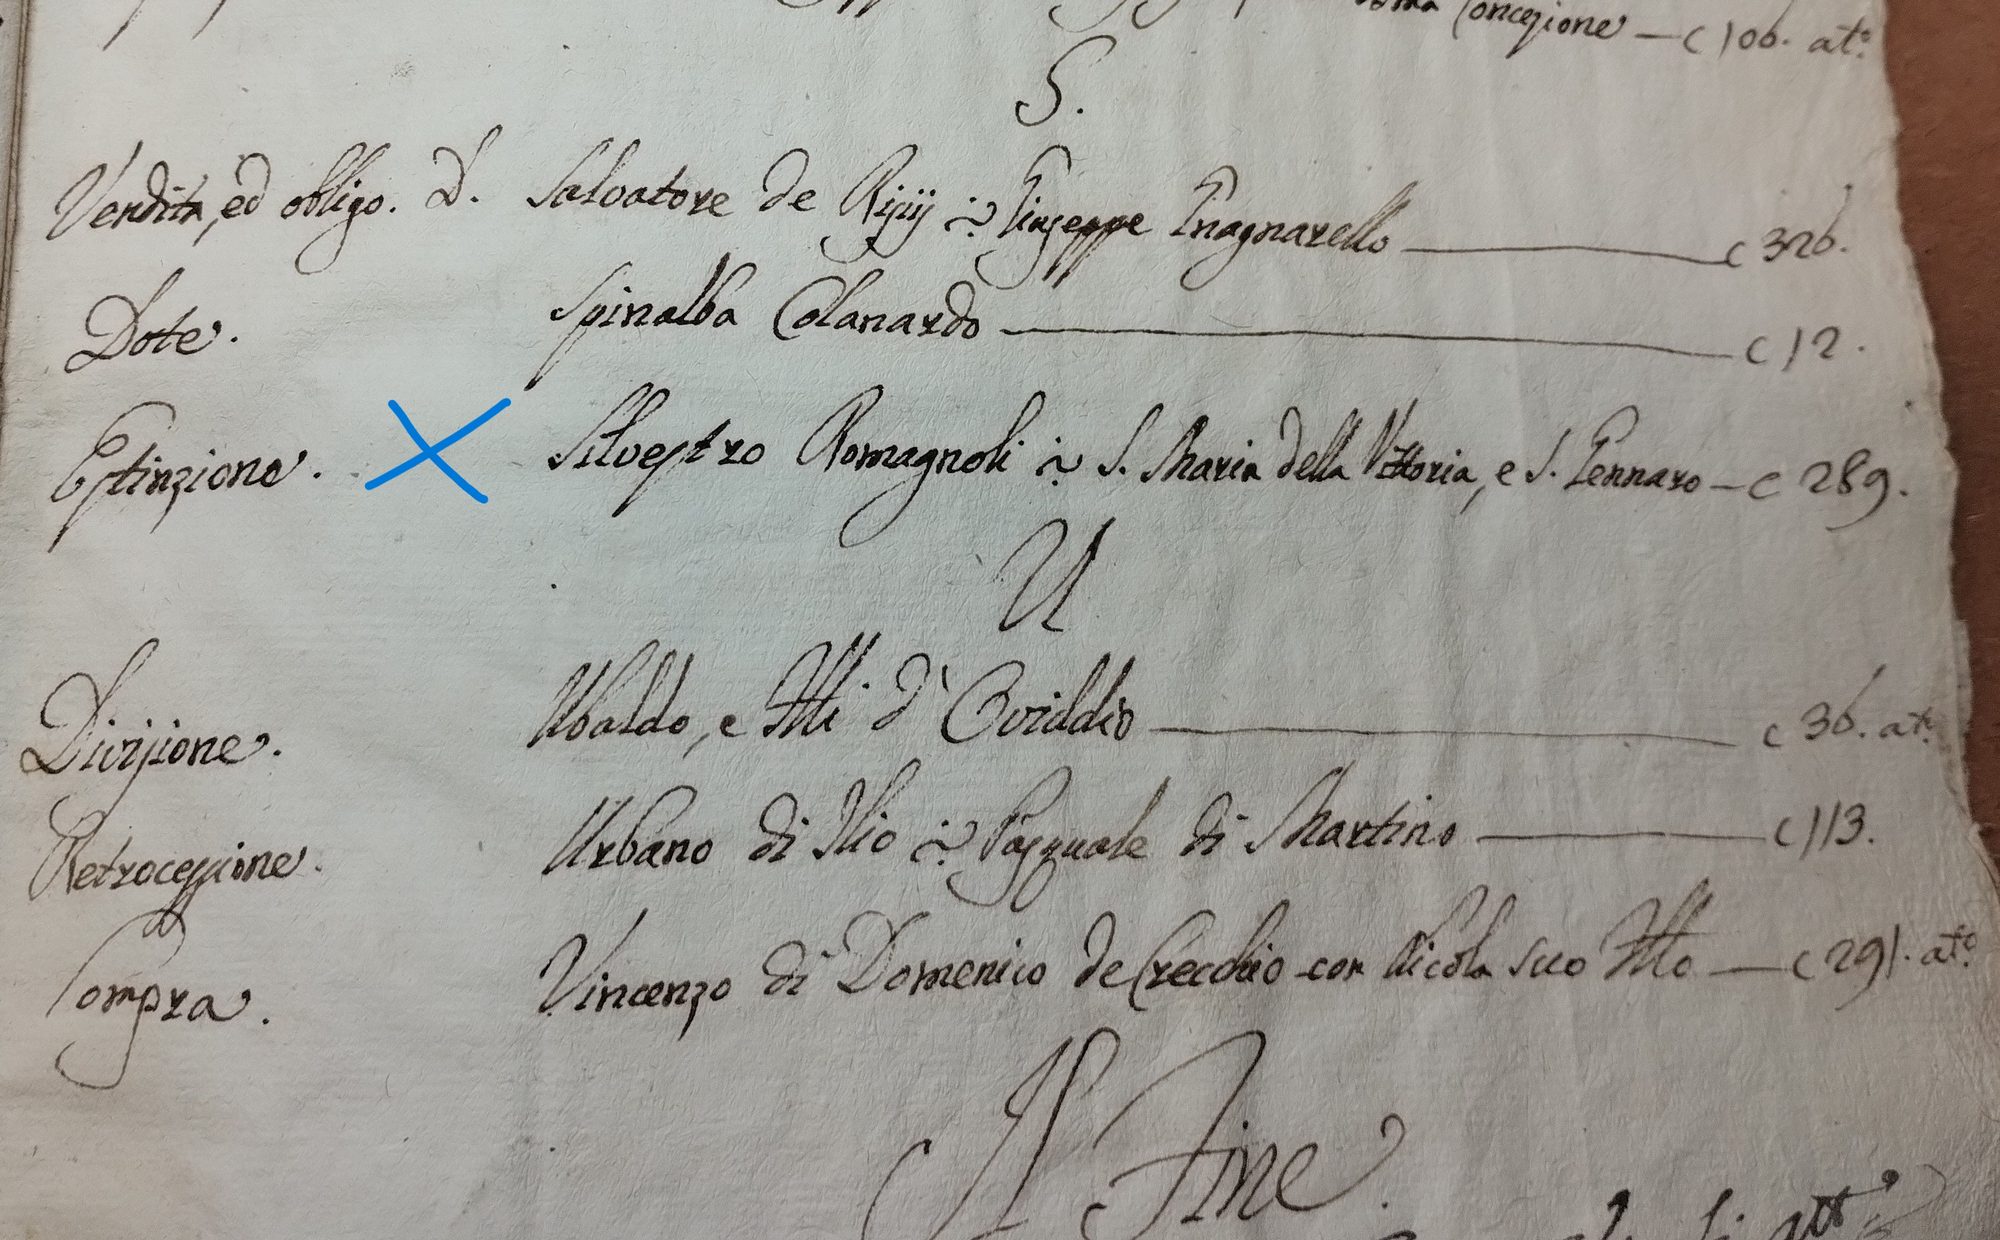 Concezione — c 106. at.º
S.
Vendita, ed obligo. D. Salvatore de Rijij Giuseppe c 326.
Dote. Spinalba Colanardo — c 12.
Estinzione. Silvestro Romagnoli S. Maria della Vittoria, e S. Gennaro — c 289.
U
Divisione. Ubaldo, e Flli d' Oviddio — c 36. at.º
Retrocessione. Urbano di Ilio Pasquale di Martino — c 113.
Compra. Vincenzo di Domenico de Crecchio con Nicola suo Fllo — c 291. at.º
Il Fine.